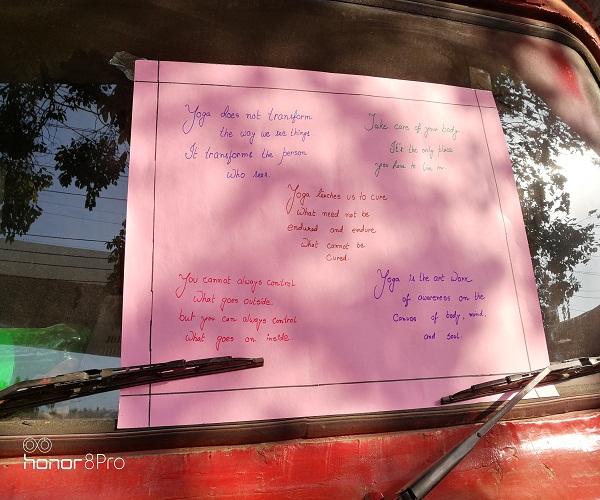 Yoga does not transform
the way we see things
It transforms the person
Who sees.
Take care of your body.
It's the only place
you have to live in.
Yoga teaches us to cure
What need not be
endured and endure
What cannot be
Cured.
You cannot always control
What goes outside.
but you can always control
What goes on inside.
Yoga is the art work
of awareness on the
Canvas of body, mind,
and soul.
honor 8 Pro